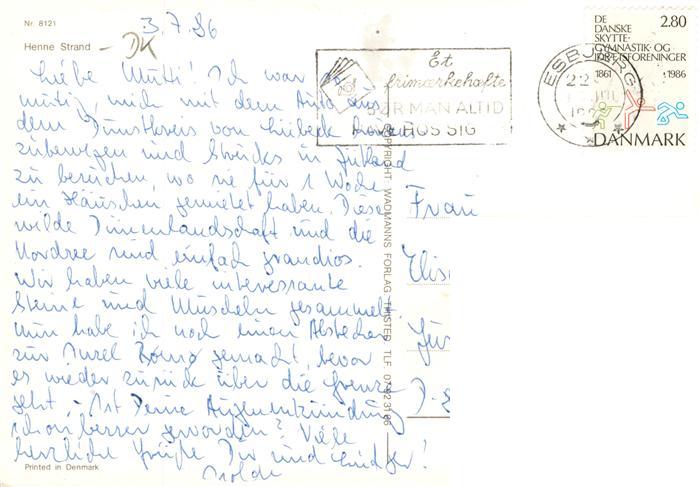 Nr. 8121
Henne Strand - DK
3.7.86
Liebe Mutti! Ich war so
mutig, mich mit dem Auto aus
dem Dunstkreis von Lübeck
zubewegen und in Jütland
zu besuchen, wo sie für 1 Woche
ein Häuschen gemietet haben. Diese
wilde Dünenlandschaft und die
Nordsee sind einfach grandios.
Wir haben viele interessante
Steine und Muscheln gesammelt.
Nun habe ich noch einen Abstecher
zur Insel Römö gemacht, bevor
es wieder zurück über die Grenze
geht. - Ist Deine Augenentzündung
schon besser geworden? Viele
herzliche Grüße Dir und
Printed in Denmark
COPYRIGHT WADMANNS FORLAG THISTED TLF
Et
frimærkehæfte
BØR MAN ALTID
HAVE HOS SIG
ESBJERG
DE
DANSKE
SKYTTE-
GYMNASTIK- OG
IDRÆTSFORENINGER
2.80
1861
1986
DANMARK
Frau